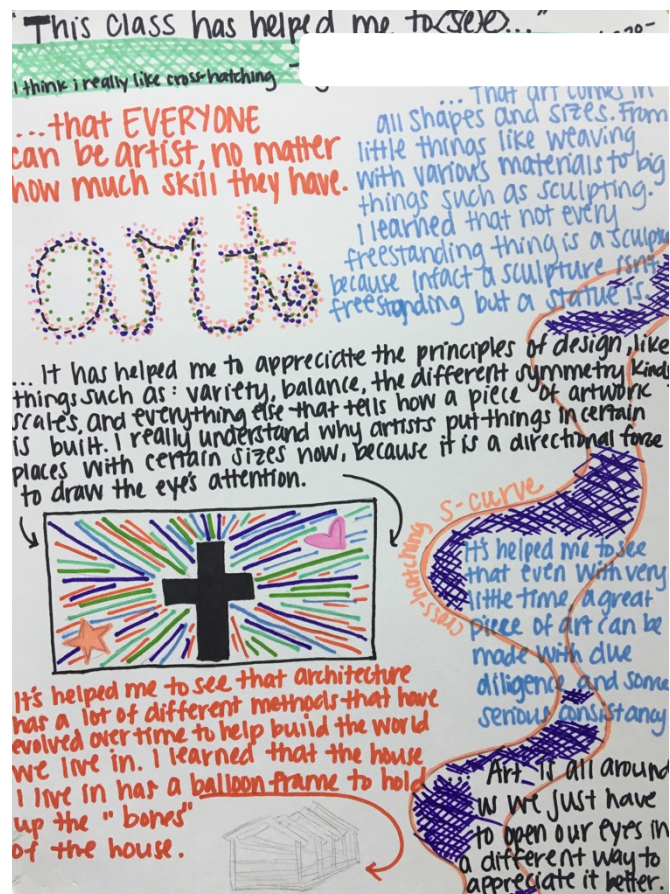 "This class has helped me to (see)..."
I think i really like cross-hatching -
...that EVERYONE
can be artist, no matter
how much skill they have.
arts
... That art comes in
all shapes and sizes. From
little things like weaving
with various materials to big
things such as sculpting.
I learned that not every
freestanding thing is a sculpt
because infact a sculpture isnt
freestanding but a statue is.
... It has helped me to appreciate the principles of design, like
things such as: variety, balance, the different symmetry kinds
scales, and everything else that tells how a piece of artwork
is built. I really understand why artists put things in certain
places with certain sizes now, because it is a directional force
to draw the eye's attention.
S-curve
cross-hatching
It's helped me to see
that even with very
little time, a great
piece of art can be
made with due
diligence and some
serious consistancy
It's helped me to see that architecture
has a lot of different methods that have
evolved over time to help build the world
we live in. I learned that the house
I live in has a balloon frame to hold
up the "bones"
of the house.
... Art is all around
us we just have
to open our eyes in
a different way to
appreciate it better.